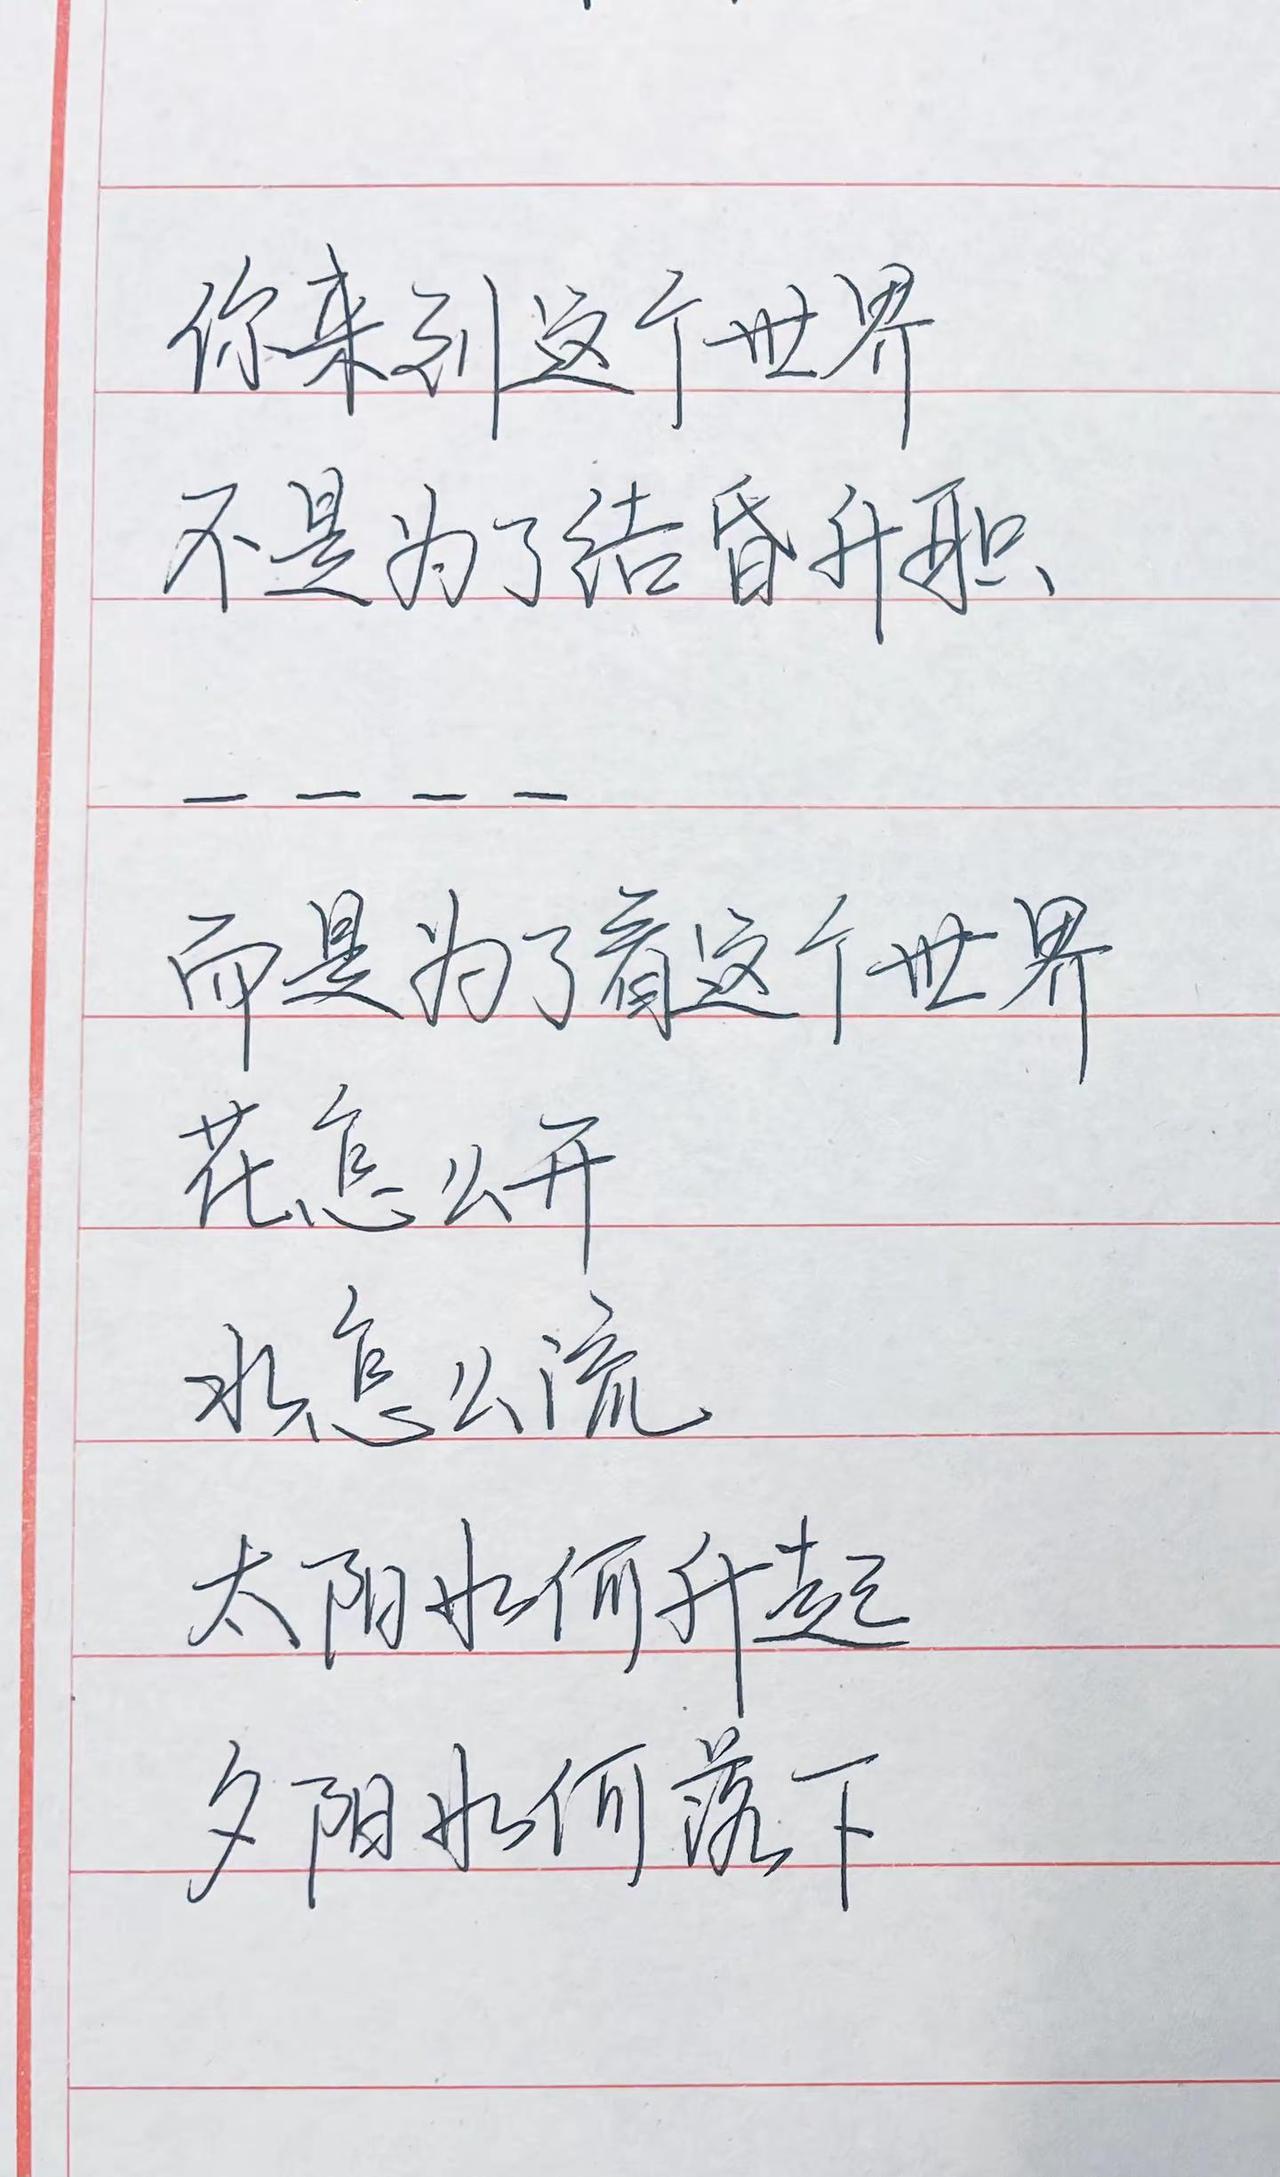 你来到这个世界
不是为了结昏升职
————
而是为了看这个世界
花怎么开
水怎么流
太阳如何升起
夕阳如何落下